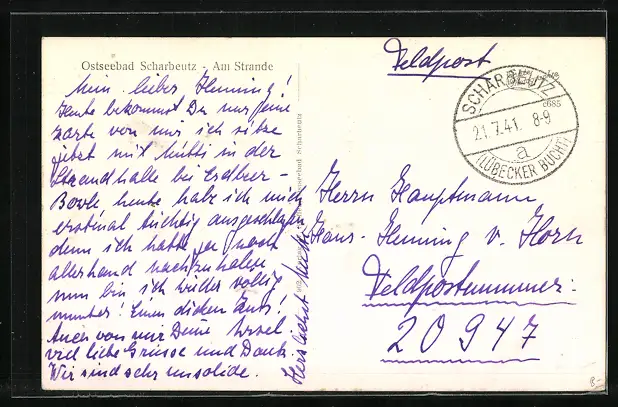 Ostseebad Scharbeutz - Am Strande
Mein lieber Henning!
Heute bekommst Du nur eine
Karte von mir ich sitze
jetzt mit Mutti in der
Strandhalle bei Erdbeer-
Bowle heute habe ich mich
erstmal tüchtig ausgeschlafen
denn ich hatte ja noch
allerhand nachzuholen
nun bin ich wieder völlig
munter! Einen dicken Kuss!
Auch von mir Deine Ursel
viel liebe Grüsse und Dank.
Wir sind sehr unsolide.
Herzlichst Mutti
Feldpost
SCHARBEUTZ
c685
21.7.41. 8-9
a
(LÜBECKER BUCHT)
Herrn Hauptmann
Hans-Henning v. Horn
Feldpostnummer:
20947